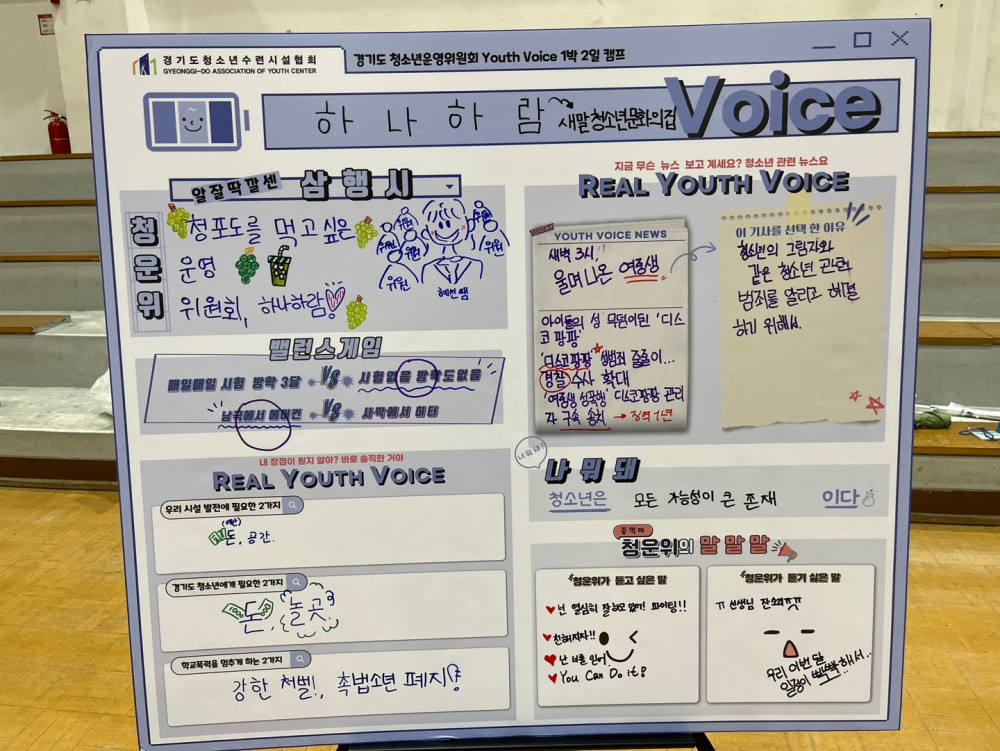 경기도청소년수련시설협회
GYEONGGI-DO ASSOCIATION OF YOUTH CENTER
경기도 청소년운영위원회 Youth Voice 1박 2일 캠프
하 나 하 람 새말청소년문화의집
Voice
알잘딱깔센 삼행시
청운위
청포도를 먹고싶은
운영
위원회, 하나하람!
위원
위원
위원
위원
위원
위원
혜선쌤
밸런스게임
매일매일 시험 방학 3달 VS 시험없을 방학도없음
남극에서 에어컨 VS 사막에서 히터
내 장점이 뭔지 알아? 바로 솔직한 거야
REAL YOUTH VOICE
우리 시설 발전에 필요한 2가지
(예산)
돈, 공간.
경기도 청소년에게 필요한 2가지
돈, 놀곳.
학교폭력을 멈추게 하는 2가지
강한 처벌!, 촉법소년 폐지!
지금 무슨 뉴스 보고 계세요? 청소년 관련 뉴스요
REAL YOUTH VOICE
TODAY
YOUTH VOICE NEWS
새벽 3시,
울며 나온 여중생
아이들의 성 무덤이된 '디스
코팡팡'
'디스코팡팡' 성범죄 줄줄이...
경찰 수사 확대
'여중생 성폭행' 디스코팡팡 관리
자 구속 송치 → 징역 1년
이 기사를 선택 한 이유
청소년의 그림자와
같은 청소년 관련
범죄를 알리고 해결
하기 위해서.
나 뭐 돼?
나 뭐 돼
청소년은 모든 가능성이 큰 존재 이다
중꺾마
청운위의 말 말 말
청운위가 듣고 싶은 말
넌 열심히 잘하고 있어! 파이팅!!
친해지자!!
난 너를 믿어!
You Can Do it!
청운위가 듣기 싫은 말
ㅠ 선생님 잔소리ㅠㅠ
우리 이번 달
일정이 빡빡해서..